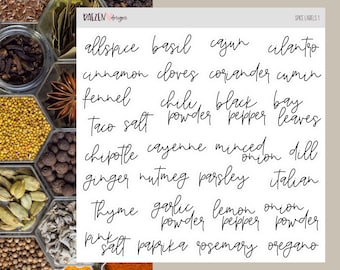 DAEZEN designs
SPICE LABELS 1
allspice basil cajun cilantro
cinnamon cloves coriander cumin
fennel chili powder black pepper bay leaves
taco salt
chipotle cayenne minced onion dill
ginger nutmeg parsley italian
thyme garlic powder lemon pepper onion powder
pink salt paprika rosemary oregano